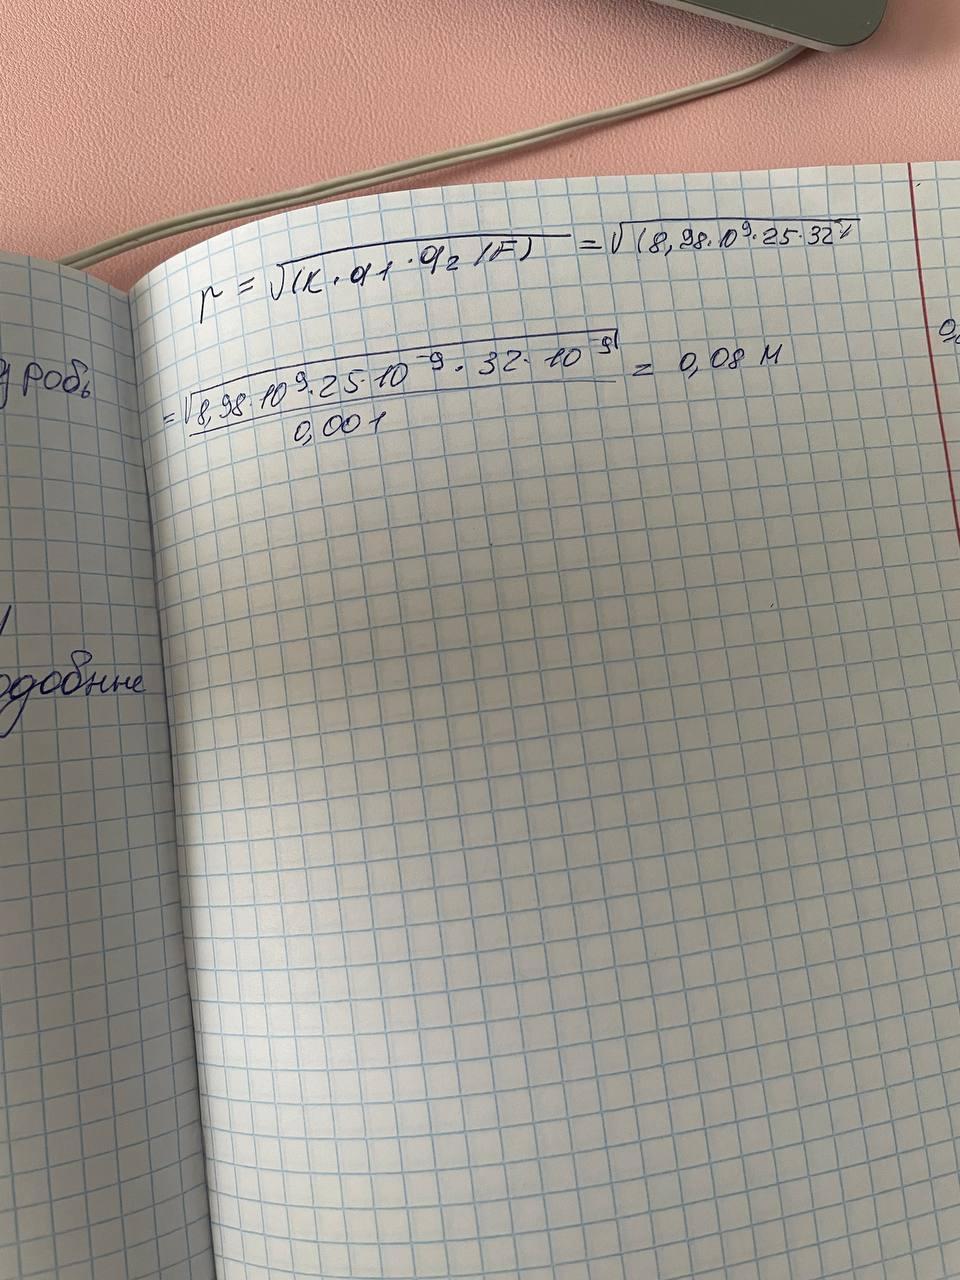 r = √(k·q1·q2/F) = √(8,98·10⁹·25·32
= √8,98·10⁹·25·10⁻⁹·32·10⁻⁹ = 0,08 м
0,001
одобные